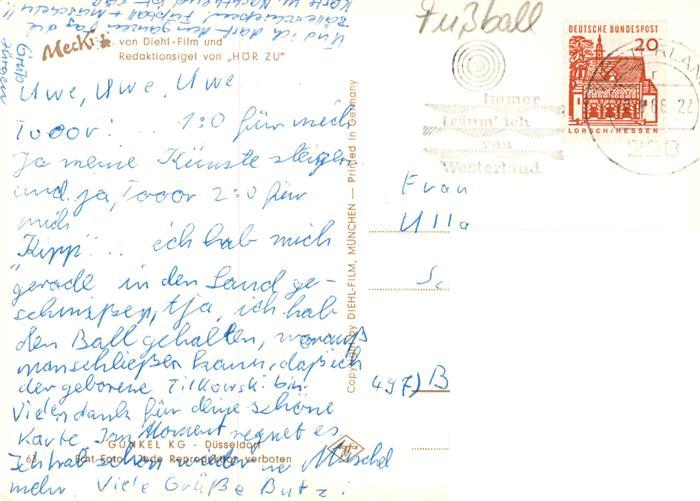 Fußball
DEUTSCHE BUNDESPOST
20
LORSCH/HESSEN
228
Immer
träum' ich
von
Westerland
Mecki
von Diehl-Film und
Redaktionsigel von „HÖR ZU"
Uwe, Uwe, Uwe
Tooor! ... 1:0 für mich
Ja meine Künste steigen
und ja, Tooor 2:0 für
mich
Kipp".. ich hab mich
gerade in den Sand ge-
schmißen, tja, ich hab
den Ball gehalten, woraus
man schließen kann, daß ich
der geborene Tilkowski bin.
Vielen dank für deine schöne
Karte. Im Moment regnet es
Ich hab schon wieder 'ne Muschel
mehr. Viele Grüße Butz!
Und ich darf den ganzen Tag die
Fußball + Muscheln!!
Gruß
Jürgen
Copyright by DIEHL-FILM, MÜNCHEN — Printed in Germany
Frau
Ulla
Sc
497) B
GÜNKEL KG - Düsseldorf
63 Echt-Foto Jede Reproduktion verboten